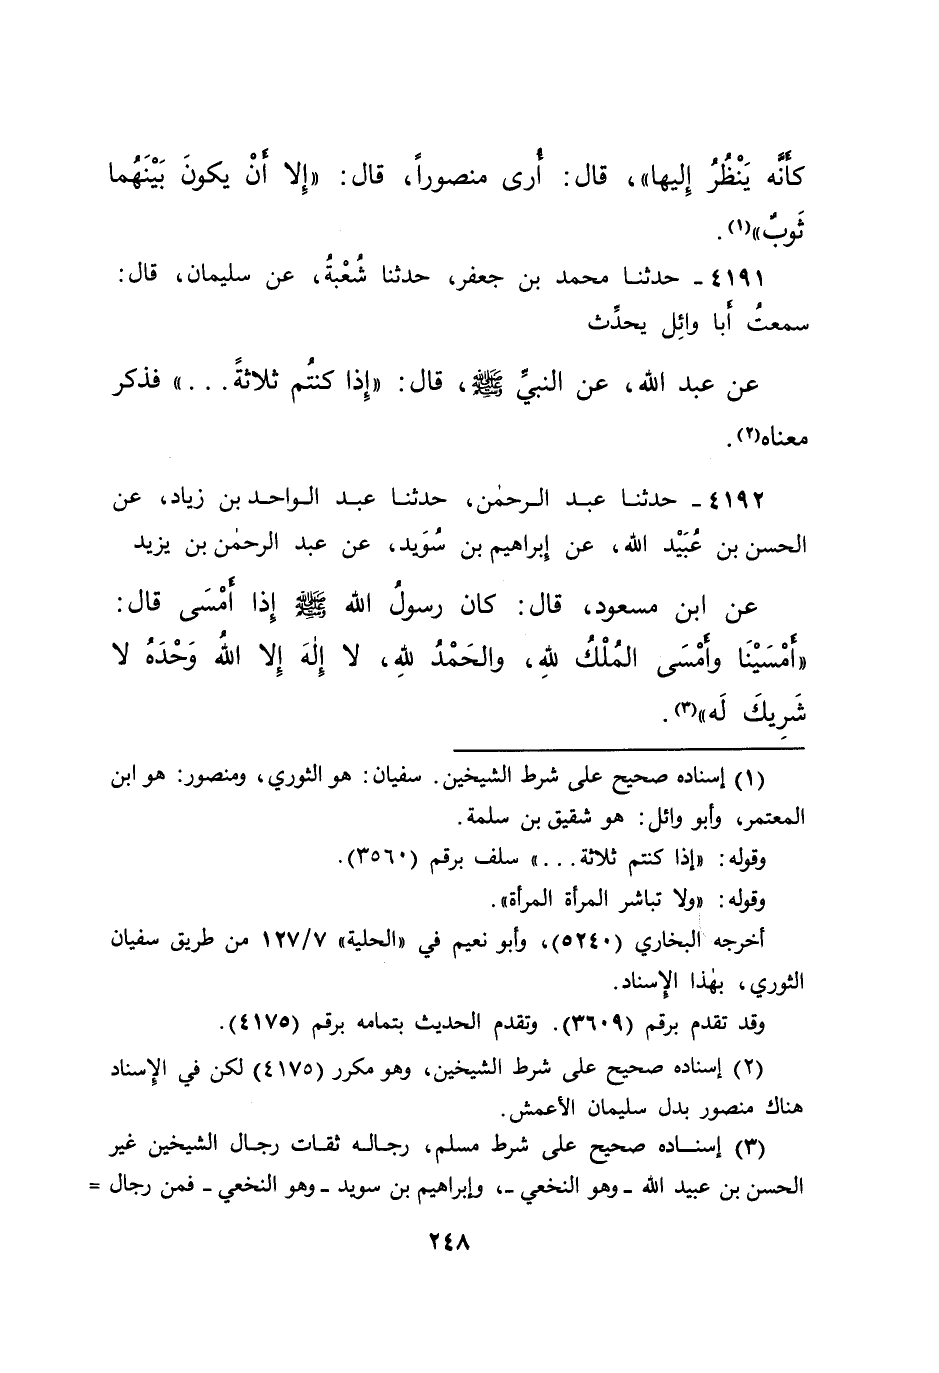 كأَنَّه يَنْظُرُ إليها»، قال: أُرى منصوراً، قال: «إلا أَنْ يكونَ بَيْنَهُما
ثَوبٌ»(١).
٤١٩١ ـ حدثنا محمد بن جعفر، حدثنا شُعْبةُ، عن سليمان، قال:
سمعتُ أَبا وائِل يحدِّث
عن عبد الله، عن النبيِّ ﷺ، قال: «إذا كنتُم ثلاثةً...» فذكر
معناه(٢).
٤١٩٢ ـ حدثنا عبد الرحمٰن، حدثنا عبد الواحد بن زياد، عن
الحسن بن عُبَيْد الله، عن إبراهيم بن سُوَيد، عن عبد الرحمٰن بن يزيد
عن ابن مسعود، قال: كان رسولُ الله ﷺ إذا أَمْسَى قال:
«أَمْسَيْنَا وأَمْسَى المُلْكُ للهِ، والحَمْدُ للهِ، لا إِلٰهَ إِلا اللهُ وَحْدَهُ لا
شَرِيكَ لَه»(٣).
(١) إسناده صحيح على شرط الشيخين. سفيان: هو الثوري، ومنصور: هو ابن
المعتمر، وأبو وائل: هو شقيق بن سلمة.
وقوله: «إذا كنتم ثلاثة...» سلف برقم (٣٥٦٠).
وقوله: «ولا تباشر المرأة المرأة».
أخرجه البخاري (٥٢٤٠)، وأبو نعيم في «الحلية» ١٢٧/٧ من طريق سفيان
الثوري، بهٰذا الإسناد.
وقد تقدم برقم (٣٦٠٩). وتقدم الحديث بتمامه برقم (٤١٧٥).
(٢) إسناده صحيح على شرط الشيخين، وهو مكرر (٤١٧٥) لكن في الإسناد
هناك منصور بدل سليمان الأعمش.
(٣) إسناده صحيح على شرط مسلم، رجاله ثقات رجال الشيخين غير
الحسن بن عبيد الله ـ وهو النخعي ـ، وإبراهيم بن سويد ـ وهو النخعي ـ فمن رجال =
٢٤٨